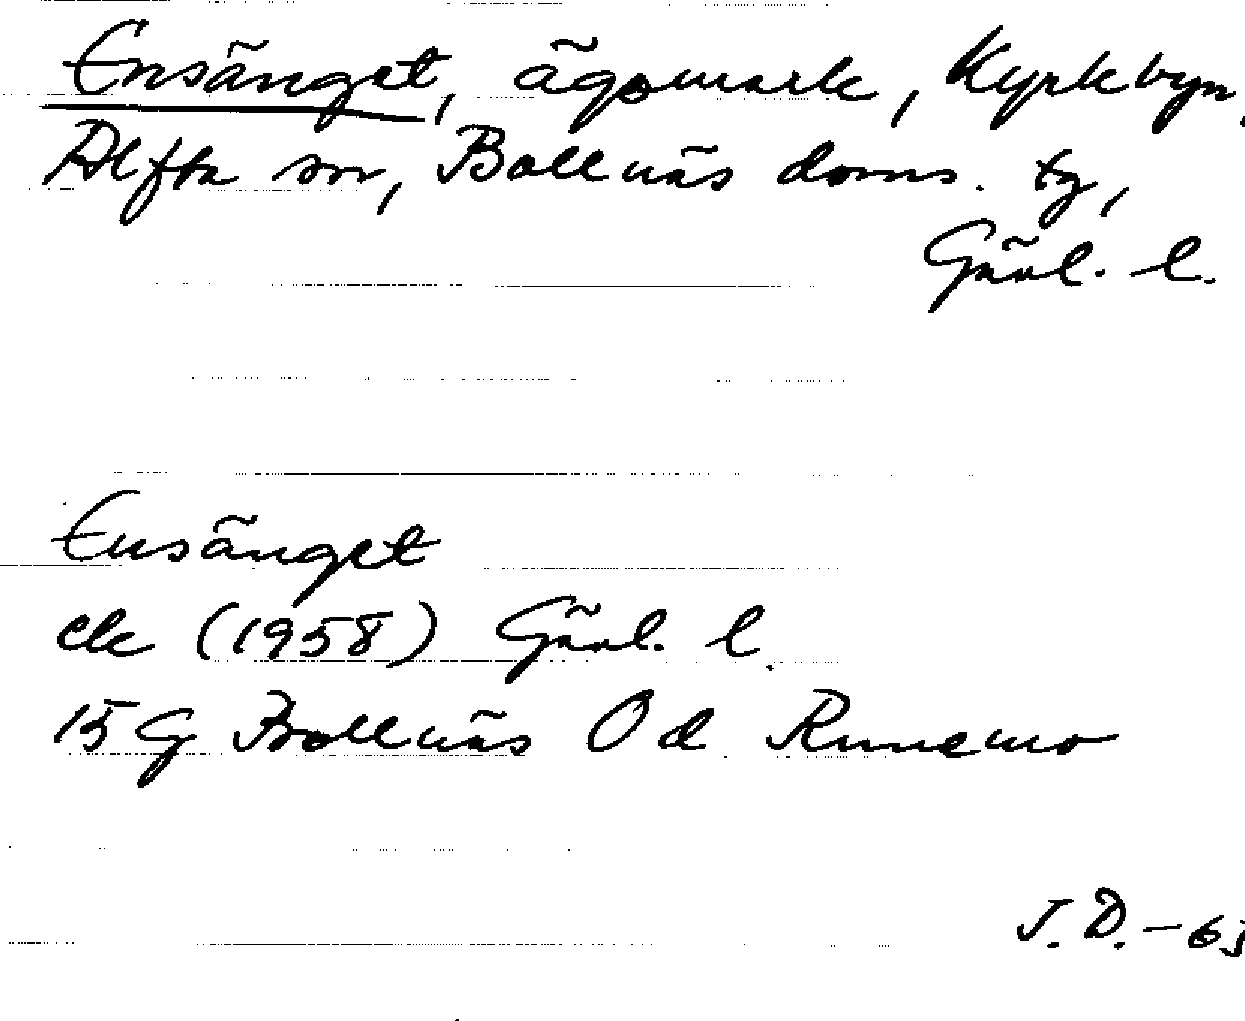 Ensänget, ägomark, Kyrkbyn,
Alfta sn, Bollnäs doms. tg,
Gävl. l.
Ensänget
ek (1958) Gävl. l.
15 G Bollnäs Od Runemo
J. D. -63